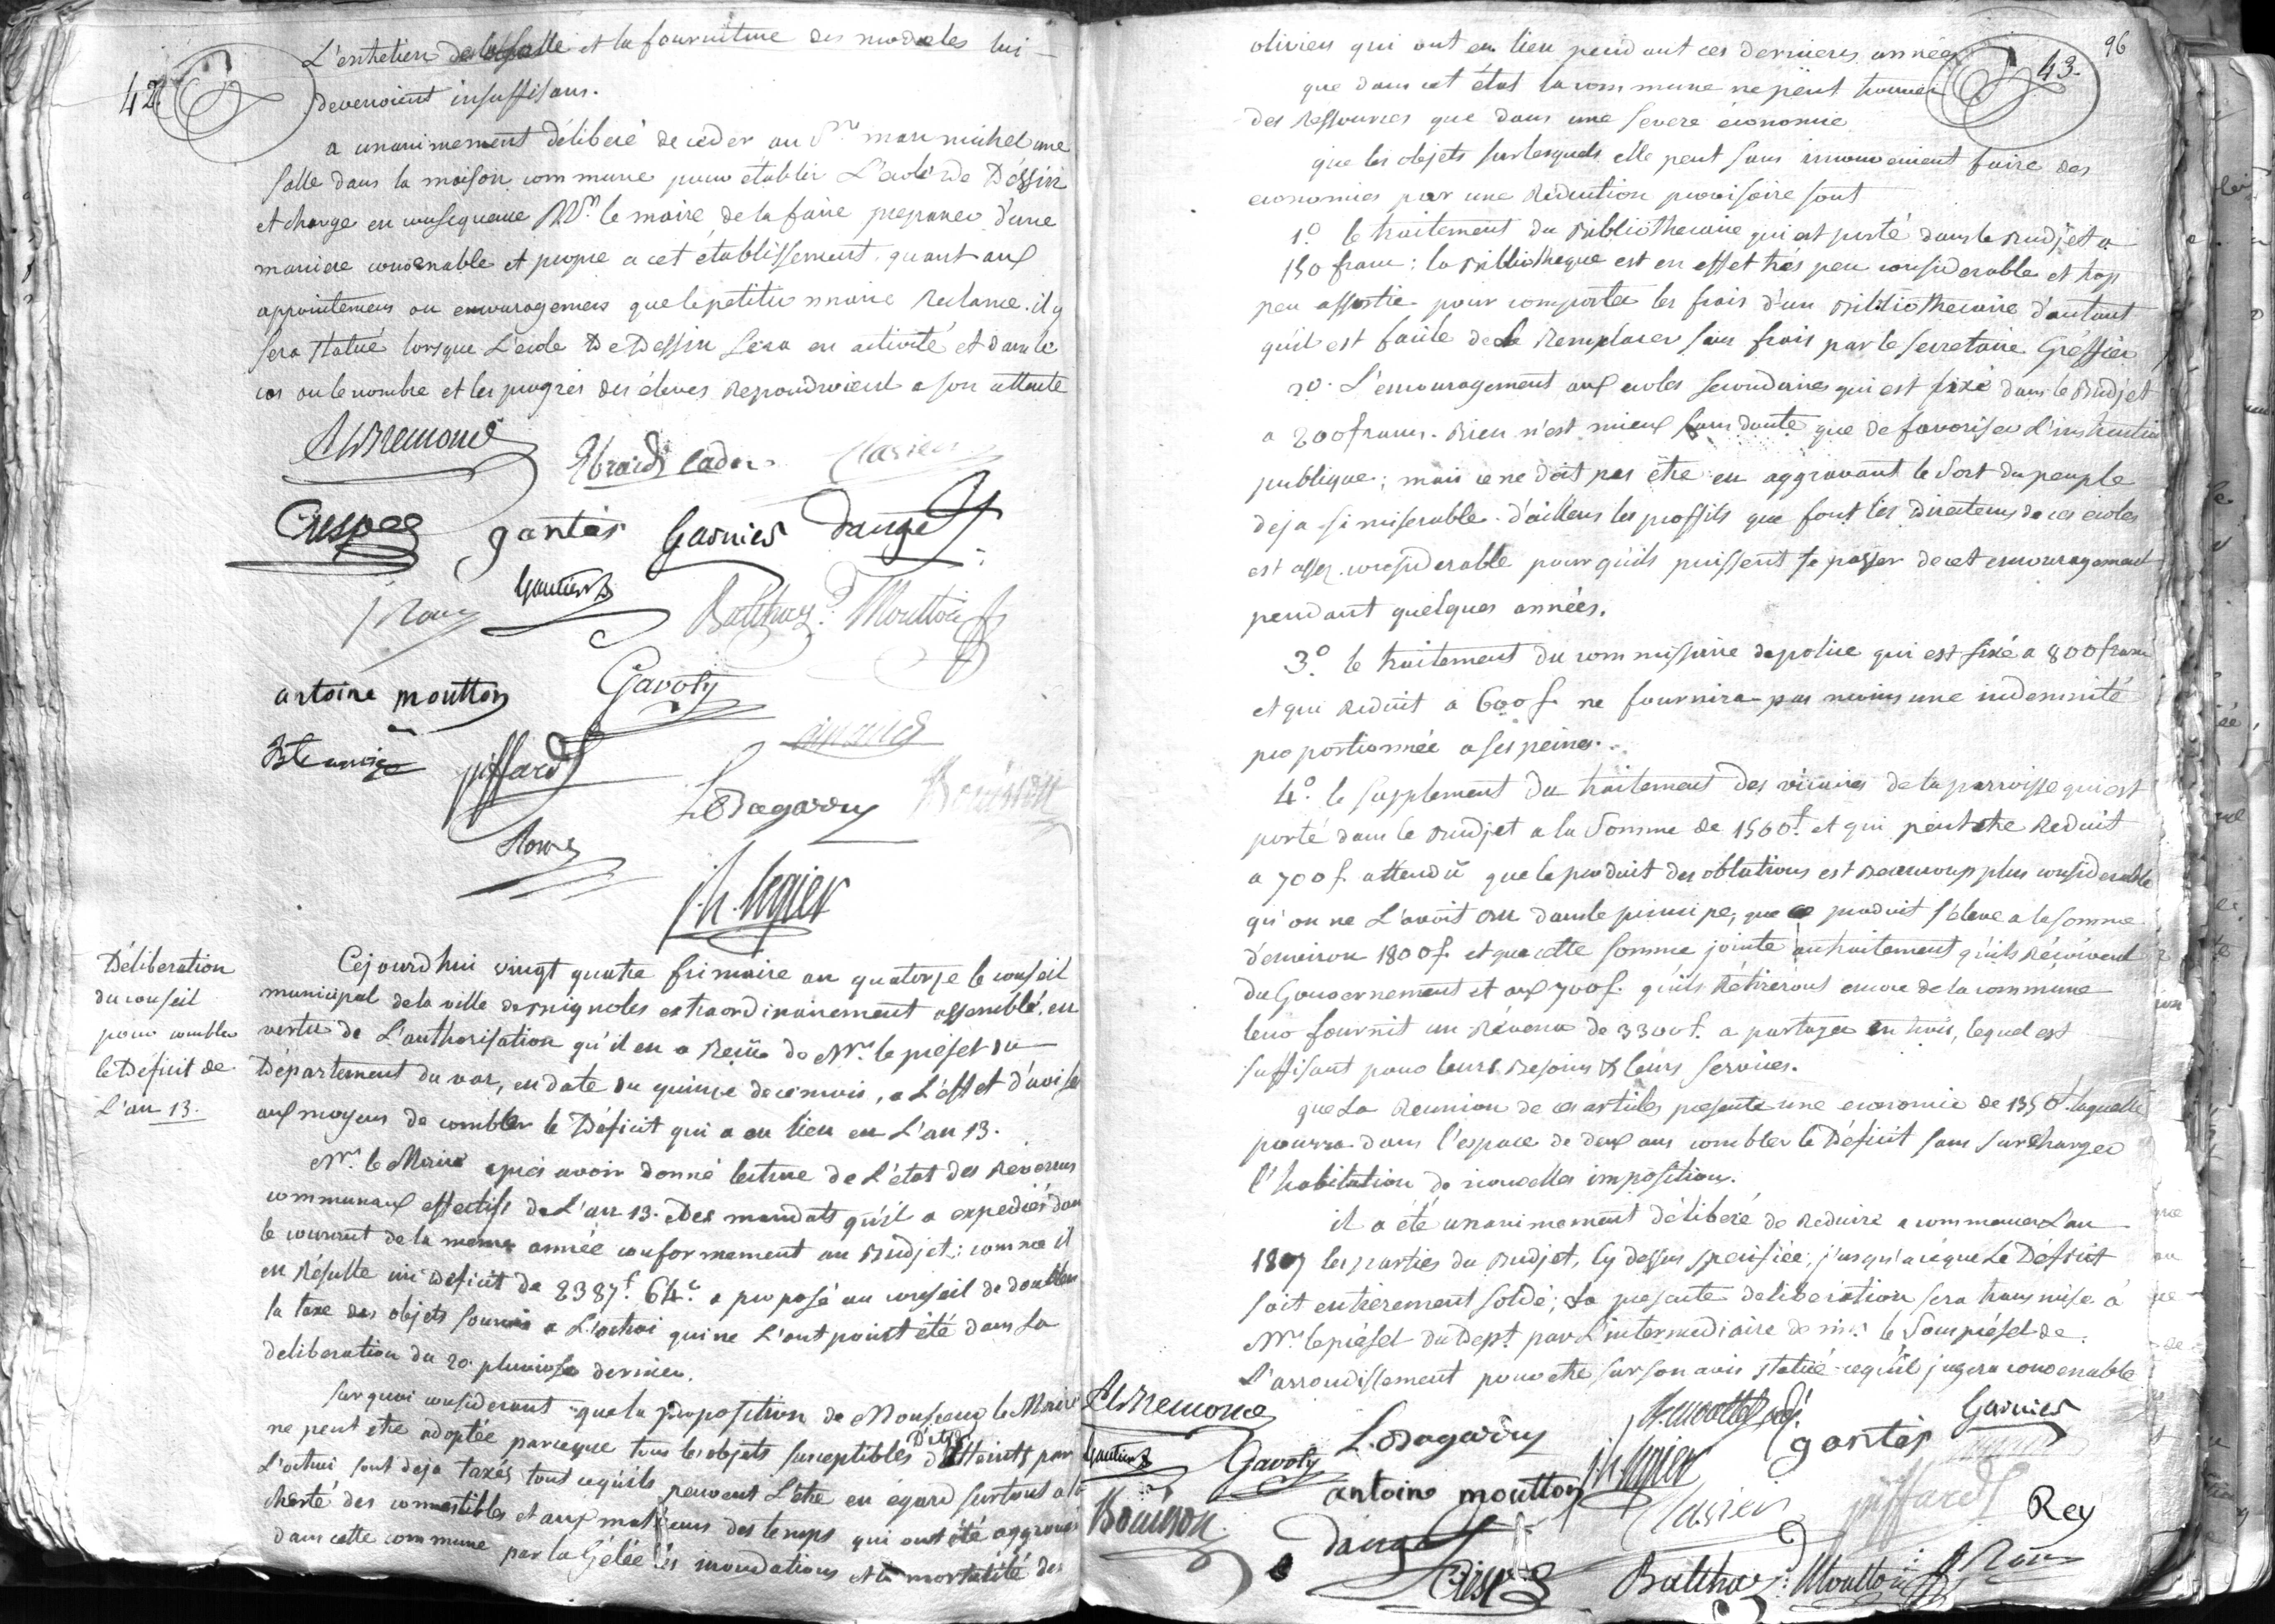 42.
L'entretien de la salle et la fourniture des modeles lui
devenoient insuffisans.
a unanimement délibéré de ceder au Sr marc michel une
salle dans la maison commune pour établir L'ecole de Dessin
et charge en consequence Mr. le maire de la faire preparer d'une
maniere convenable et propre a cet établissement. quant aux
appointemens ou encouragemens que le petitionnaire reclame. il y
sera statué lorsque L'ecole De Dessin sera en activité et dans le
cas ou le nombre et les progrès des éleves repondroient a son attente
Bremond
Ebrard cadet
Clavier
Crespe
gantés
Garnier
Dauge
Gautier
Balthaz.d Moutton
antoine moutton
Gavoty
piffard
L. Dagarry
Bouisson
j.h. legier
Déliberation
du conseil
pour combler
le Déficit de
L'an 13.
Cejourd'hui vingt quatre frimaire an quatorze le conseil
municipal de la ville de Brignoles extraordinairement assemblé, en
vertu de L'authorisation qu'il en a reçue de Mr. le préfet du
Département du var, en date du quinze de ce mois, a L'effet d'aviser
aux moyens de combler le Déficit qui a eu lieu en L'an 13.
Mr. le Maire après avoir donné lecture de L'état des Revenus
communaux effectifs de L'an 13. Des mandats qu'il a expediés dans
le courant de la meme année conformement au Budjet: comme il
en résulte un déficit de 2387f. 64c. a proposé au conseil de doubler
la taxe des objets soumis a L'octroi qui ne L'ont point été dans La
deliberation du 20. pluviose dernier.
Sur quoi considerant que la proposition de Monsieur le Maire
ne peut etre adoptée parceque tous les objets susceptibles D'etre atteints par
L'octroi sont deja taxés tout cequ'ils peuvent L'etre eu égard surtout a la
cherté des comestibles et aux malheurs des temps qui ont été aggravés
dans cette commune par la Gélée les inondations et la mortalité des
96
43.
oliviers qui ont eu lieu pendant ces dernieres années
que dans cet état la commune ne peut trouver
des ressources que dans une severe économie
que les objets sur lesquels elle peut sans inconvenient faire des
economies par une Réduction provisoire sont
1o. le traitement du Bibliothecaire qui est porté dans le Budjet a
150 francs: la Bibliotheque est en effet très peu considerable et trop
peu assortie pour comporter les frais d'un Bibliothecaire d'autant
qu'il est facile de le Remplacer sans frais par le secretaire Gréffier
2o. L'encouragement aux ecoles secondaires qui est fixé dans le Budjet
a 200 francs. Rien n'est mieux sans doute que de favoriser L'instruction
publique; mais ce ne doit pas être en aggravant le Sort du peuple
deja si miserable. d'ailleurs les proffits que font les Directeurs de ces écoles
est assez considerable pour qu'ils puissent se passer de cet encouragement
pendant quelques années.
3o. le traitement du commissaire de police qui est fixé a 800 francs
et qui Reduit a 600 f. ne fournira pas moins une indemnité
proportionnée a ses peines.
4o. le supplement du traitement des vicaires de la parroisse qui est
porté dans le Budjet a la Somme de 1500f. et qui peut etre Reduit
a 700 f. attendu que le produit des oblations est Beaucoup plus considerable
qu'on ne L'avoit cru dans le principe, que ce produit s'éleve a la somme
d'environ 1800 f. et que cette somme jointe au traitement qu'ils Reçoivent
du Gouvernement et aux 700 f. qu'ils Retireront encore de la commune
leur fournit un Revenu de 3300 f. a partager en trois, lequel est
suffisant pour leurs Besoins & leurs services.
que La Reunion de ces articles presente une economie de 1350f. laquelle
pourra dans l'espace de deux ans combler le Déficit sans surcharger
l'habitation de nouvelles imposition.
il a été unanimement délibéré de Reduire a commencer L'an
1807 les parties du Budjet, cy dessus specifiées, jusqu'aceque Le Déficit
soit entierement soldé; La presente deliberation sera transmise à
Mr. le préfet du Dept. par L'intermediaire de Mr. le Souspréfet de
L'arrondissement pour etre sur son avis statué cequ'il jugera convenable
Bremond
L. Dagarry
gantés
Garnier
Gautier
Gavoty
antoine moutton
j.h. legier
Clavier
piffard
Rey
Bouisson
Dauge
Crespe
Balthaz. Moutton